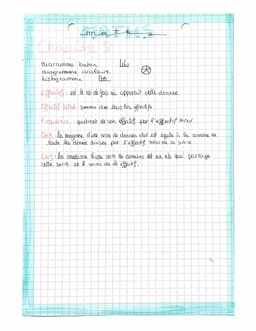 maths
Chapitre 5
diagramme baton
diagramme circulaire
histogramme
Effectifs : est le nb de fois où apparaît cette donnée
Effectif total : somme des tous les effectifs
Fréquence : quotient de son effectif par l'effectif total
Def : la moyenne d'une serie de données est egale à la somme de
toute les données divisée par l'effectif total de la serie
Def : la mediane d'une serie de données est un nb qui partage
cette serie en 2 de